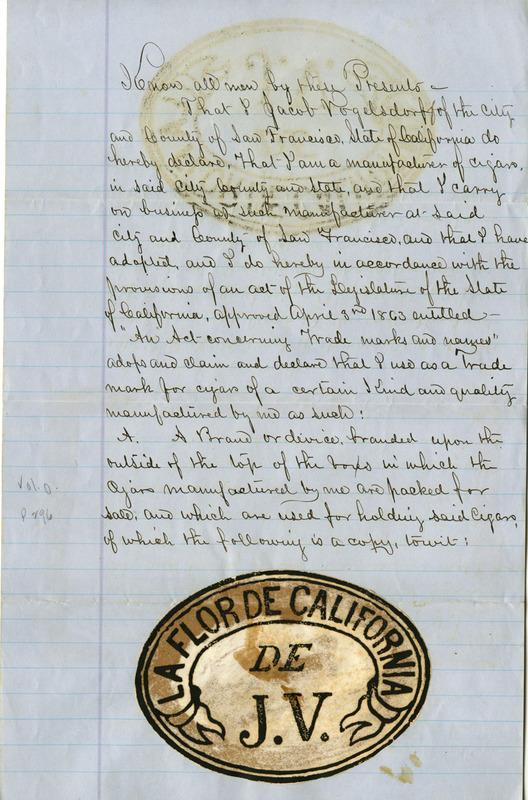 Know all men by these Presents –
That I Jacob Vogelsdorff of the City
and County of San Francisco, State of California do
hereby declare, That I am a manufacturer of cigars,
in said City County and State, and that I carry
on business as such manufacturer at said
City and County of San Francisco, and that I have
adopted, and I do hereby in accordance with the
provisions of an act of the Legislature of the State
of California, approved April 3rd 1863 entitled –
"An Act concerning Trade marks and names"
adopt and claim and declare that I use as a Trade
mark for cigars of a certain Kind and quality
manufactured by me as such:
A. A Brand or divice, branded upon the
outside of the top of the boxes in which the
Cigars manufactured by me are packed for
sale, and which are used for holding said Cigars,
of which the following is a copy, towit:
Vol. D.
P 296
LA FLOR DE CALIFORNIA
DE
J.V.